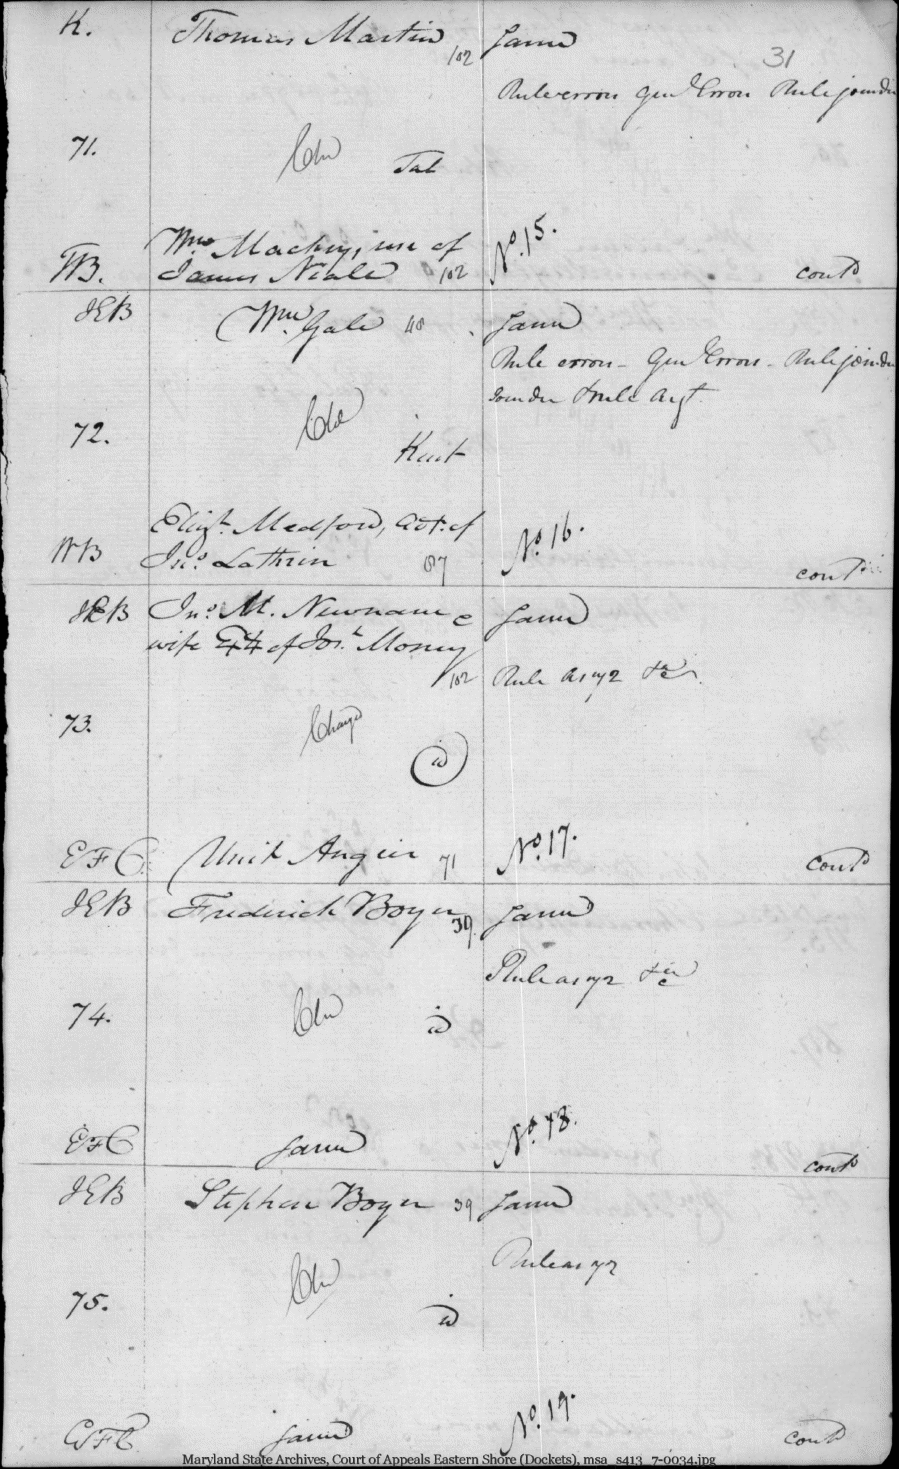 K. Thomas Martin 102 Same
31
Rule errors Gen.l Errors Rule joinder
71. Tal
Wm. Mackey, use of No. 15.
WB. James Neale 102 cont.d
JEB Wm. Gale 48 Same
Rule errors - Gen.l Errors - Rule joinder
Joinder & rule Arg.t
72.
Kent
Eliz.h Medford, adt. of No. 16.
WB Jno. Lathrin 87 cont.d
JEB Jno. M. Newnam & Same
wife of Jos.h Money
102 Rule
73.
id
EFC Unit Angier 71 No. 17. cont.d
JEB Frederick Boyer 39. Same
Rule
74. id
No. 18.
EFC Same cont.d
JEB Stephen Boyer 39 Same
Rule
75. id
No. 19.
EFC Same cont.d
Maryland State Archives, Court of Appeals Eastern Shore (Dockets), msa_s413_7-0034.jpg